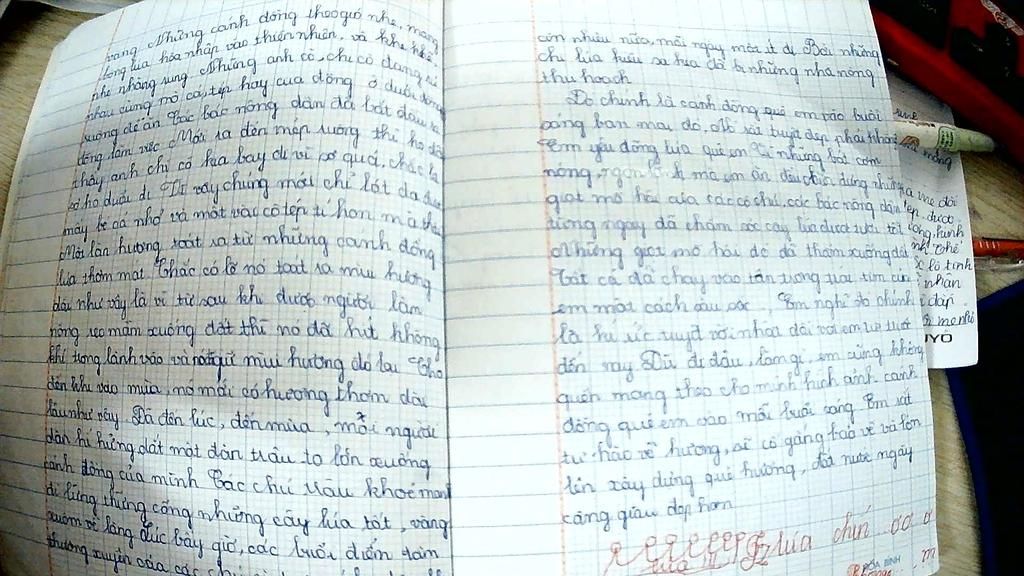 vang. Những cánh đồng theo gió nhẹ, mang
lòng lúa hòa nhập vào thiên nhiên, và khe khẽ
nhẹ nhàng rung. Những anh cò, chị cò đang rủ
nhau cùng mò cá, tép hay cua đồng ở dưới đồng
ruộng để ăn. Các bác nông dân đã bắt đầu ra
đồng làm việc. Mới ra đến mép ruộng thì họ đã
thấy anh chị cò kia bay đi vì sợ quá, chắc là
sợ họ đuổi đi. Từ vậy chúng mới chỉ lót dạ được
mấy bé cá nhỏ và một vài cô tép tí hon mà thôi.
Mỗi lần hương toát ra từ những cánh đồng
lúa thơm mát. Chắc có lẽ nó toát ra mùi hương
dịu như vậy là vì từ sau khi được người làm
nông reo mầm xuống đất thì nó đã hút không
khí trong lành vào và giữ mùi hương đó lại. Cho
đến khi vào mùa, nó mới có hương thơm dịu
dàng như vậy. Đã đến lúc, đến mùa, mọi người
dân hí hửng dắt một đàn trâu to lớn xuống
cánh đồng của mình. Các chú trâu khoẻ mạnh
đi lững thững cõng những cây lúa tốt, vàng
ươm về làng. Lúc bấy giờ, các buổi điểm tâm
thường xuyên của các
còn nhiều nữa, mỗi ngày một ít đi. Bởi những
chị lúa kiều sa kia đã bị những nhà nông
thu hoạch.
Đó chính là cánh đồng quê em vào buổi
sáng ban mai đó. Nó rất tuyệt đẹp, phải không
Em yêu đồng lúa quê em. Từ những bát cơm
nóng, mà em ăn đều chứa đựng những
giọt mồ hôi của các cô chú, các bác nông dân
từng ngày đã chăm sóc cây lúa được tươi tốt.
Những giọt mồ hôi đó đã thấm xuống đất
Tất cả đã chạy vào tận trong trái tim của
em một cách sâu sắc. Em nghĩ đó chính
là kí ức tuyệt vời nhất đối với em từ trước
đến nay. Dù đi đâu, làm gì, em cũng không
quên mang theo cho mình hình ảnh cánh
đồng quê em vào mỗi buổi sáng. Em rất
tự hào về hương, sẽ cố gắng bảo vệ và lớn
lên xây dựng quê hương, đất nước ngày
càng giàu đẹp hơn.
lúa chín
HÒA BÌNH